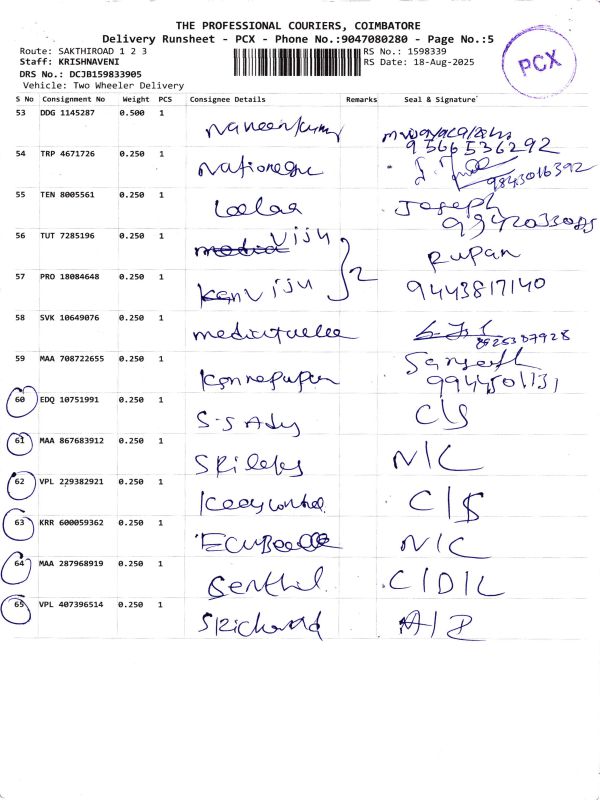 THE PROFESSIONAL COURIERS, COIMBATORE
Delivery Runsheet - PCX - Phone No.:9047080280 - Page No.:5
Route: SAKTHIROAD 1 2 3 RS No.: 1598339
Staff: KRISHNAVENI RS Date: 18-Aug-2025
PCX
DRS No.: DCJB159833905
Vehicle: Two Wheeler Delivery
S No Consignment No Weight PCS Consignee Details Remarks Seal & Signature
53 DDG 1145287 0.500 1 Naveenkumar
9566536292
54 TRP 4671726 0.250 1
9843016392
55 TEN 8005561 0.250 1 Leelaa Joseph
56 TUT 7285196 0.250 1 Viju Rupan
57 PRO 18084648 0.250 1 Viju 2 9443817140
58 SVK 10649076 0.250 1
8925307928
59 MAA 708722655 0.250 1
9944501131
60 EDQ 10751991 0.250 1 C/S
61 MAA 867683912 0.250 1 N/C
62 VPL 229382921 0.250 1 C/S
63 KRR 600059362 0.250 1 N/C
64 MAA 287968919 0.250 1 Senthil C/D/L
65 VPL 407396514 0.250 1